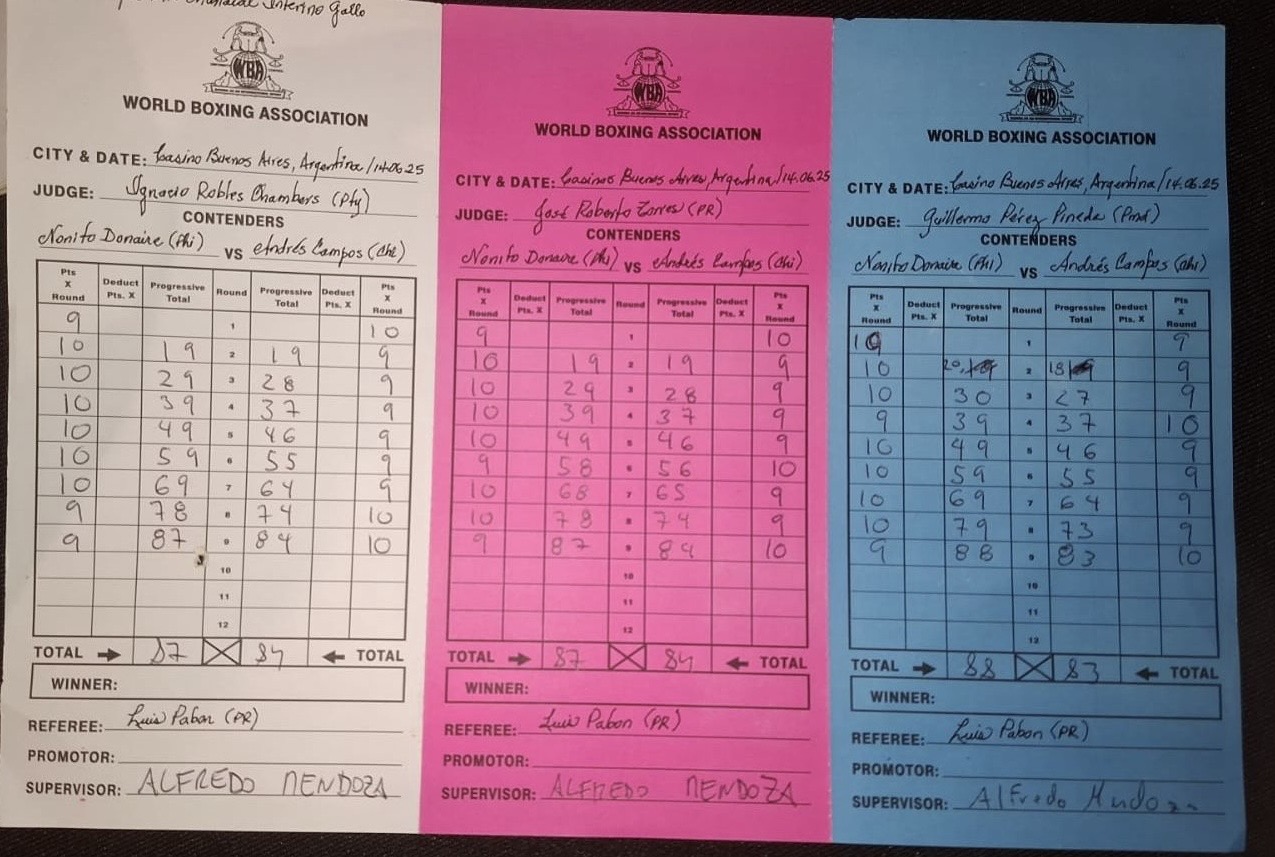 Interino Gallo
WBA
WORLD BOXING ASSOCIATION
CITY & DATE: Casino Buenos Aires, Argentina/14.06.25
JUDGE: Ignacio Robles Chambers (Pty)
CONTENDERS
Nonito Donaire (Phi) VS Andrés Campos (Chi)
Pts X Round Deduct Pts. X Progressive Total Round Progressive Total Deduct Pts. X Pts X Round
9 1 10
10 19 2 19 9
10 29 3 28 9
10 39 4 37 9
10 49 5 46 9
10 59 6 55 9
10 69 7 64 9
9 78 8 74 10
9 87 9 84 10
10
11
12
TOTAL 87 84 TOTAL
WINNER:
REFEREE: Luis Pabon (PR)
PROMOTOR:
SUPERVISOR: ALFREDO MENDOZA
WBA
WORLD BOXING ASSOCIATION
CITY & DATE: Casinos Buenos Aires, Argentina/14.06.25
JUDGE: José Roberto Torres (PR)
CONTENDERS
Nonito Donaire (Phi) VS Andrés Campos (Chi)
Pts X Round Deduct Pts. X Progressive Total Round Progressive Total Deduct Pts. X Pts X Round
9 1 10
10 19 2 19 9
10 29 3 28 9
10 39 4 37 9
10 49 5 46 9
9 58 6 56 10
10 68 7 65 9
10 78 8 74 9
9 87 9 84 10
10
11
12
TOTAL 87 84 TOTAL
WINNER:
REFEREE: Luis Pabon (PR)
PROMOTOR:
SUPERVISOR: ALFREDO MENDOZA
WBA
WORLD BOXING ASSOCIATION
CITY & DATE: Casino Buenos Aires, Argentina/14.06.25
JUDGE: Guillermo Pérez Pineda (Pmá)
CONTENDERS
Nonito Donaire (PHI) VS Andrés Campos (Chi)
Pts X Round Deduct Pts. X Progressive Total Round Progressive Total Deduct Pts. X Pts X Round
10 1 9
10 20 2 18 9
10 30 3 27 9
9 39 4 37 10
10 49 5 46 9
10 59 6 55 9
10 69 7 64 9
10 79 8 73 9
9 88 9 83 10
10
11
12
TOTAL 88 83 TOTAL
WINNER:
REFEREE: Luis Pabon (PR)
PROMOTOR:
SUPERVISOR: Alfredo Mendoza